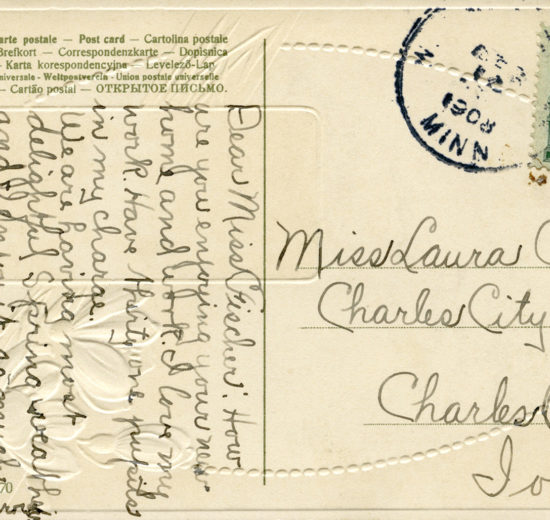 arte postale — Post card — Cartolina postale
Brefkort — Correspondenzkarte — Dopisnica
Karta korespondencyjna — Levelező-Lap
niversale - Weltpostverein - Union postale universelle
— Cartão postal — ОТКРЫТОЕ ПИСЬМО.
Dear Miss Fischer: How
are you enjoying your new
home and work. I love my
work. Have thirty one pupils
in my charge.
We are having most
delightful Spring weather
and
70
1908
MINN
Miss Laura
Charles City
Charles
Io